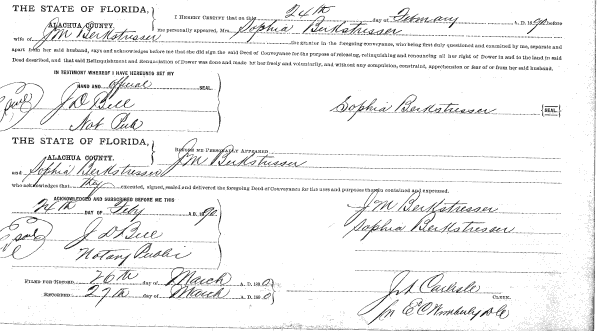 THE STATE OF FLORIDA,
ALACHUA COUNTY.
I HEREBY CERTIFY that on this 24th day of February A. D. 1890 before
me personally appeared, Mrs. Sophia Berkstresser
wife of J M Berkstresser the grantor in the foregoing conveyance, who being first duly questioned and examined by me, separate and
apart from her said husband, says and acknowledges before me that she did sign the said Deed of Conveyance for the purpose of releasing, relinquishing and renouncing all her right of Dower in and to the land in said
Deed described, and that said Relinquishment and Renunciation of Dower was done and made by her freely and voluntarily, and without any compulsion, constraint, apprehension or fear of or from her said husband.
IN TESTIMONY WHEREOF I HAVE HEREUNTO SET MY
HAND AND official SEAL.
Seal
J D Bell
Not Pub
Sophia Berkstresser SEAL
THE STATE OF FLORIDA,
ALACHUA COUNTY.
BEFORE ME PERSONALLY APPEARED J M Berkstresser
and Sophia Berkstresser
who acknowledged that they executed, signed, sealed and delivered the foregoing Deed of Conveyance for the uses and purposes therein contained and expressed.
ACKNOWLEDGED AND SUBSCRIBED BEFORE ME THIS
24th DAY OF Feby A. D. 1890.
J M Berkstresser
Sophia Berkstresser
Seal
J D Bell
Notary Public
FILED FOR RECORD 26th day of March A. D. 1890
RECORDED 27th day of March A. D. 1890
J A Carlisle
CLERK.
pr E C Wimberly D C